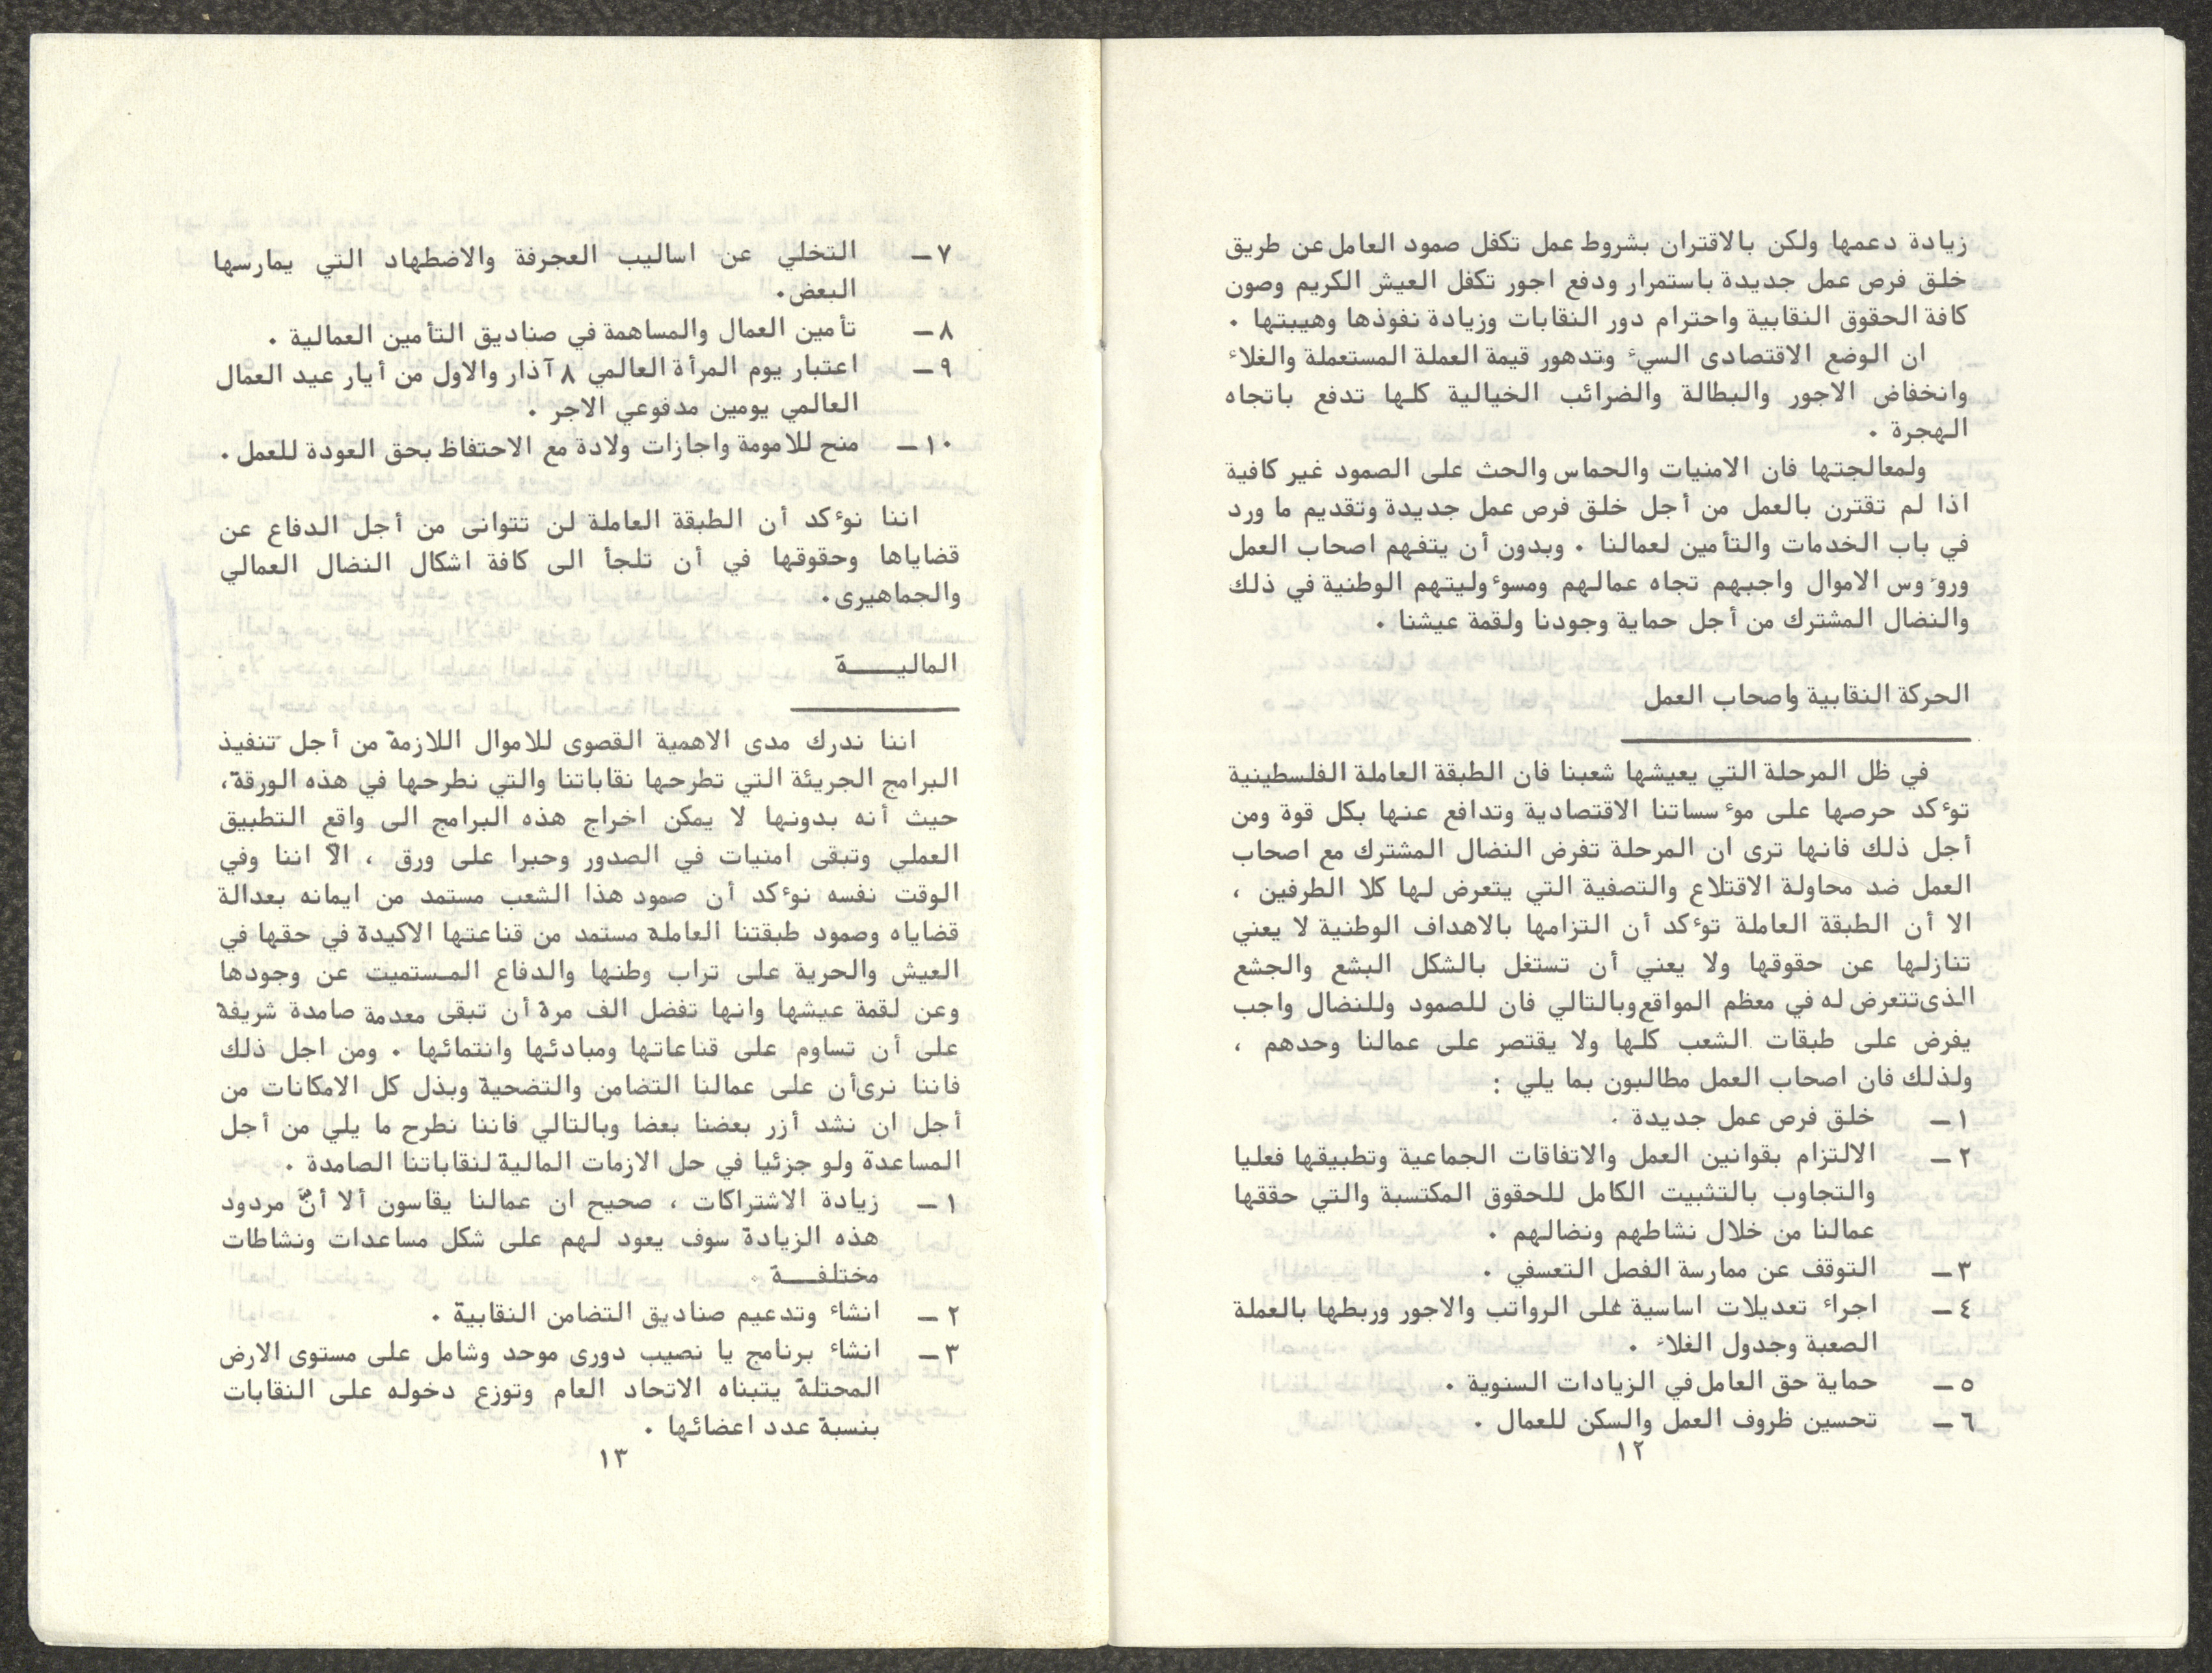 زيادة دعمها ولكن بالاقتران بشروط عمل تكفل صمود العامل عن طريق
خلق فرص عمل جديدة باستمرار ودفع اجور تكفل العيش الكريم وصون
كافة الحقوق النقابية واحترام دور النقابات وزيادة نفوذها وهيبتها .
ان الوضع الاقتصادى السيء وتدهور قيمة العملة المستعملة والغلاء
وانخفاض الاجور والبطالة والضرائب الخيالية كلها تدفع باتجاه
الهجرة .
ولمعالجتها فان الامنيات والحماس والحث على الصمود غير كافية
اذا لم تقترن بالعمل من أجل خلق فرص عمل جديدة وتقديم ما ورد
في باب الخدمات والتأمين لعمالنا . وبدون أن يتفهم اصحاب العمل
ورؤوس الاموال واجبهم تجاه عمالهم ومسؤوليتهم الوطنية في ذلك
والنضال المشترك من أجل حماية وجودنا ولقمة عيشنا .
الحركة النقابية واصحاب العمل
في ظل المرحلة التي يعيشها شعبنا فان الطبقة العاملة الفلسطينية
تؤكد حرصها على مؤسساتنا الاقتصادية وتدافع عنها بكل قوة ومن
أجل ذلك فانها ترى ان المرحلة تفرض النضال المشترك مع اصحاب
العمل ضد محاولة الاقتلاع والتصفية التي يتعرض لها كلا الطرفين ،
الا أن الطبقة العاملة تؤكد أن التزامها بالاهداف الوطنية لا يعني
تنازلها عن حقوقها ولا يعني أن تستغل بالشكل البشع والجشع
الذى تتعرض له في معظم المواقع وبالتالي فان للصمود وللنضال واجب
يفرض على طبقات الشعب كلها ولا يقتصر على عمالنا وحدهم ،
ولذلك فان اصحاب العمل مطالبون بما يلي :
١ـ خلق فرص عمل جديدة .
٢ـ الالتزام بقوانين العمل والاتفاقات الجماعية وتطبيقها فعليا
والتجاوب بالتثبيت الكامل للحقوق المكتسبة والتي حققها
عمالنا من خلال نشاطهم ونضالهم .
٣ـ التوقف عن ممارسة الفصل التعسفي .
٤ـ اجراء تعديلات اساسية على الرواتب والاجور وربطها بالعملة
الصعبة وجدول الغلاء .
٥ـ حماية حق العامل في الزيادات السنوية .
٦ـ تحسين ظروف العمل والسكن للعمال .
١٢
٧ـ التخلي عن اساليب العجرفة والاضطهاد التي يمارسها
البعض.
٨ـ تأمين العمال والمساهمة في صناديق التأمين العمالية .
٩ـ اعتبار يوم المرأة العالمي ٨ آذار والاول من أيار عيد العمال
العالمي يومين مدفوعي الاجر .
١٠ـ منح للامومة واجازات ولادة مع الاحتفاظ بحق العودة للعمل .
اننا نؤكد أن الطبقة العاملة لن تتوانى من أجل الدفاع عن
قضاياها وحقوقها في أن تلجأ الى كافة اشكال النضال العمالي
والجماهيرى.
الماليـــــة
اننا ندرك مدى الاهمية القصوى للاموال اللازمة من أجل تنفيذ
البرامج الجريئة التي تطرحها نقاباتنا والتي نطرحها في هذه الورقة،
حيث أنه بدونها لا يمكن اخراج هذه البرامج الى واقع التطبيق
العملي وتبقى امنيات في الصدور وحبرا على ورق ، الآ اننا وفي
الوقت نفسه نؤكد أن صمود هذا الشعب مستمد من ايمانه بعدالة
قضاياه وصمود طبقتنا العاملة مستمد من قناعتها الاكيدة في حقها في
العيش والحرية على تراب وطنها والدفاع المستميت عن وجودها
وعن لقمة عيشها وانها تفضل الف مرة أن تبقى معدمة صامدة شريفة
على أن تساوم على قناعاتها ومبادئها وانتمائها . ومن اجل ذلك
فاننا نرى أن على عمالنا التضامن والتضحية وبذل كل الامكانات من
أجل ان نشد أزر بعضنا بعضا وبالتالي فاننا نطرح ما يلي من أجل
المساعدة ولو جزئيا في حل الازمات المالية لنقاباتنا الصامدة .
١ـ زيادة الاشتراكات ، صحيح ان عمالنا يقاسون ألا أنّ مردود
هذه الزيادة سوف يعود لهم على شكل مساعدات ونشاطات
مختلفـــة .
٢ـ انشاء وتدعيم صناديق التضامن النقابية .
٣ـ انشاء برنامج يا نصيب دورى موحد وشامل على مستوى الارض
المحتلة يتبناه الاتحاد العام وتوزع دخوله على النقابات
بنسبة عدد اعضائها .
١٣